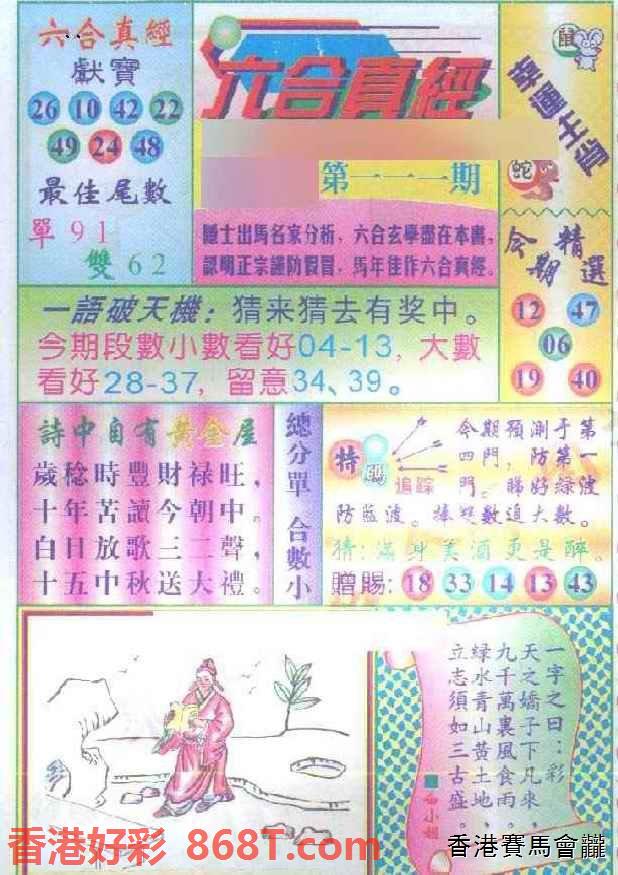 六合真經
獻寶
26 10 42 22
49 24 48
最佳尾數
單 9 1
雙 6 2
六合真經
第一一一期
隱士出馬名家分析，六合玄學盡在本書，
認明正宗謹防假冒，馬年佳作六合真經。
鼠
幸運生肖
蛇
今期精選
12 47
06
19 40
一語破天機：猜来猜去有奖中。
今期段數小數看好04-13，大數
看好28-37，留意34、39。
詩中自有黃金屋
歲稔時豐財禄旺，
十年苦讀今朝中。
白日放歌三二聲，
十五中秋送大禮。
總分單 合數小
特碼
追踪
今期預測于第
四門，防第一
門。睇好綠波
防藍波。捧雙數追大數。
猜：滿身美酒更是醉。
贈賜：18 33 14 13 43
一字之曰：彩
天之嬌子下凡來，
九千萬裏風食雨，
绿水青山黃土地，
立志須如三古盛。
小姐
香港好彩 868T.com
香港賽馬會